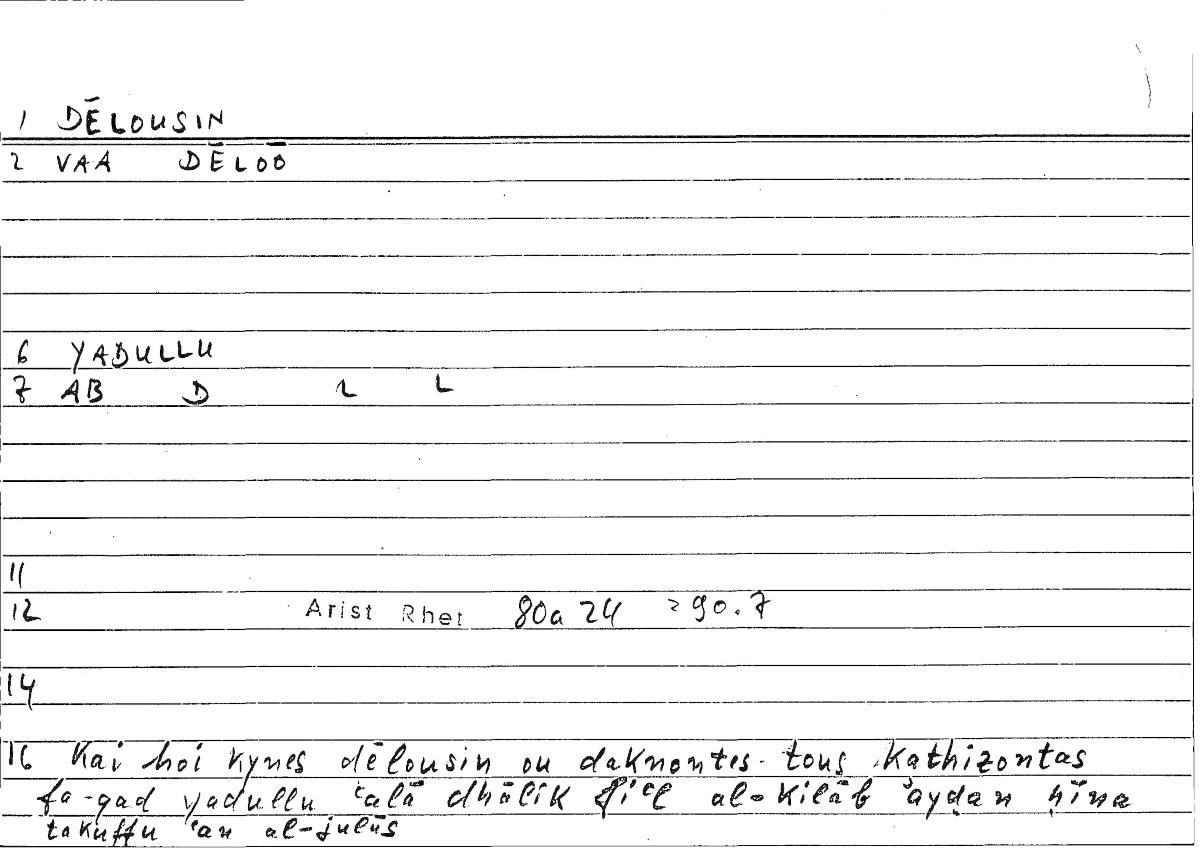 1 DĒLOUSIN
2 VAA DĒLOŌ
6 YADULLU
7 AB D L L
11
12 Arist Rhet 80a 24 = 90.7
14
16 Kai hoi kynes dēlousin ou daknontes tous kathizontas
fa-qad yadullu ʿalā dhālik fiʿl al-kilāb ʾayḍan ḥīna
takuffu ʿan al-julūs